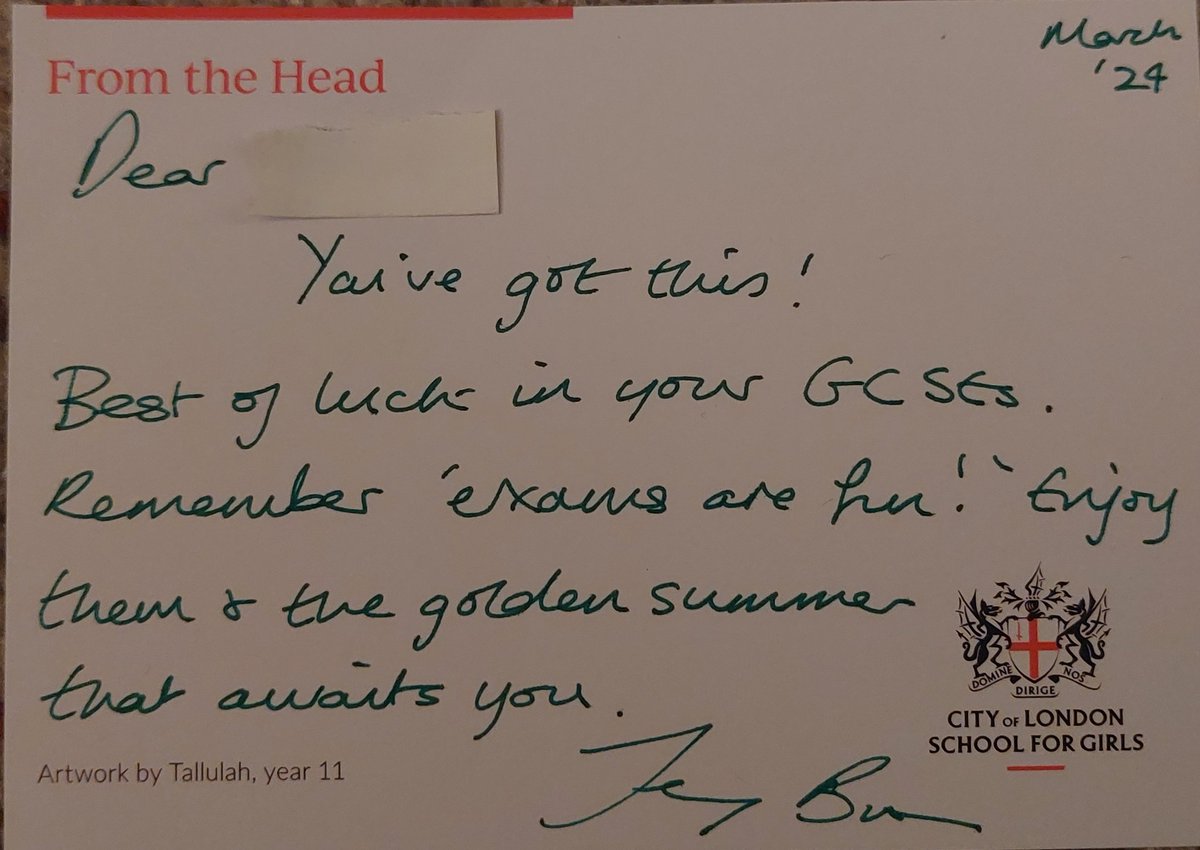 From the Head
March
'24
Dear
You've got this!
Best of luck in your GCSEs.
Remember 'exams are fun!' Enjoy
them & the golden summer
that awaits you.
DOMINE NOS
DIRIGE
CITY OF LONDON
SCHOOL FOR GIRLS
Artwork by Tallulah, year 11